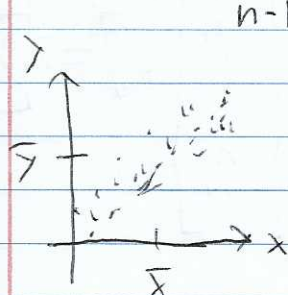 n-1
y
ȳ
x
x̄